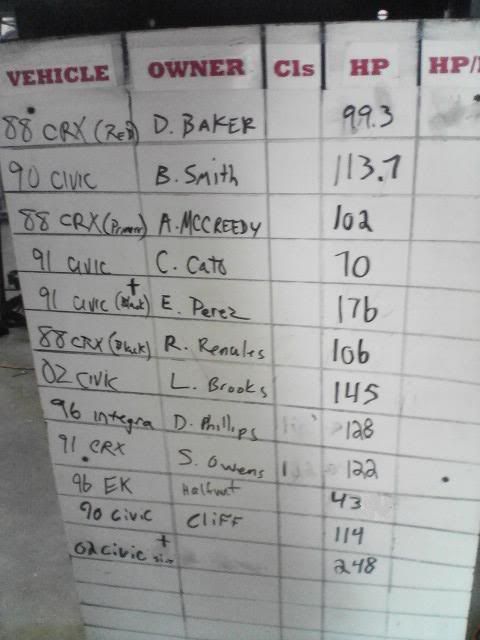 VEHICLE OWNER Cls HP HP/
88 CRX (Red) D. BAKER 99.3
90 CIVIC B. Smith 113.7
88 CRX (Primer) A. MCCREEDY 102
91 CIVIC C. Cato 70
91 CIVIC (Black) + E. Perez 176
88 CRX (Black) R. Renales 106
02 CIVIC L. Brooks 145
96 integra D. Phillips 128
91 CRX S. Owens 122
96 EK Halfnut 43
90 CIVIC CLIFF 114
02 CIVIC + 248